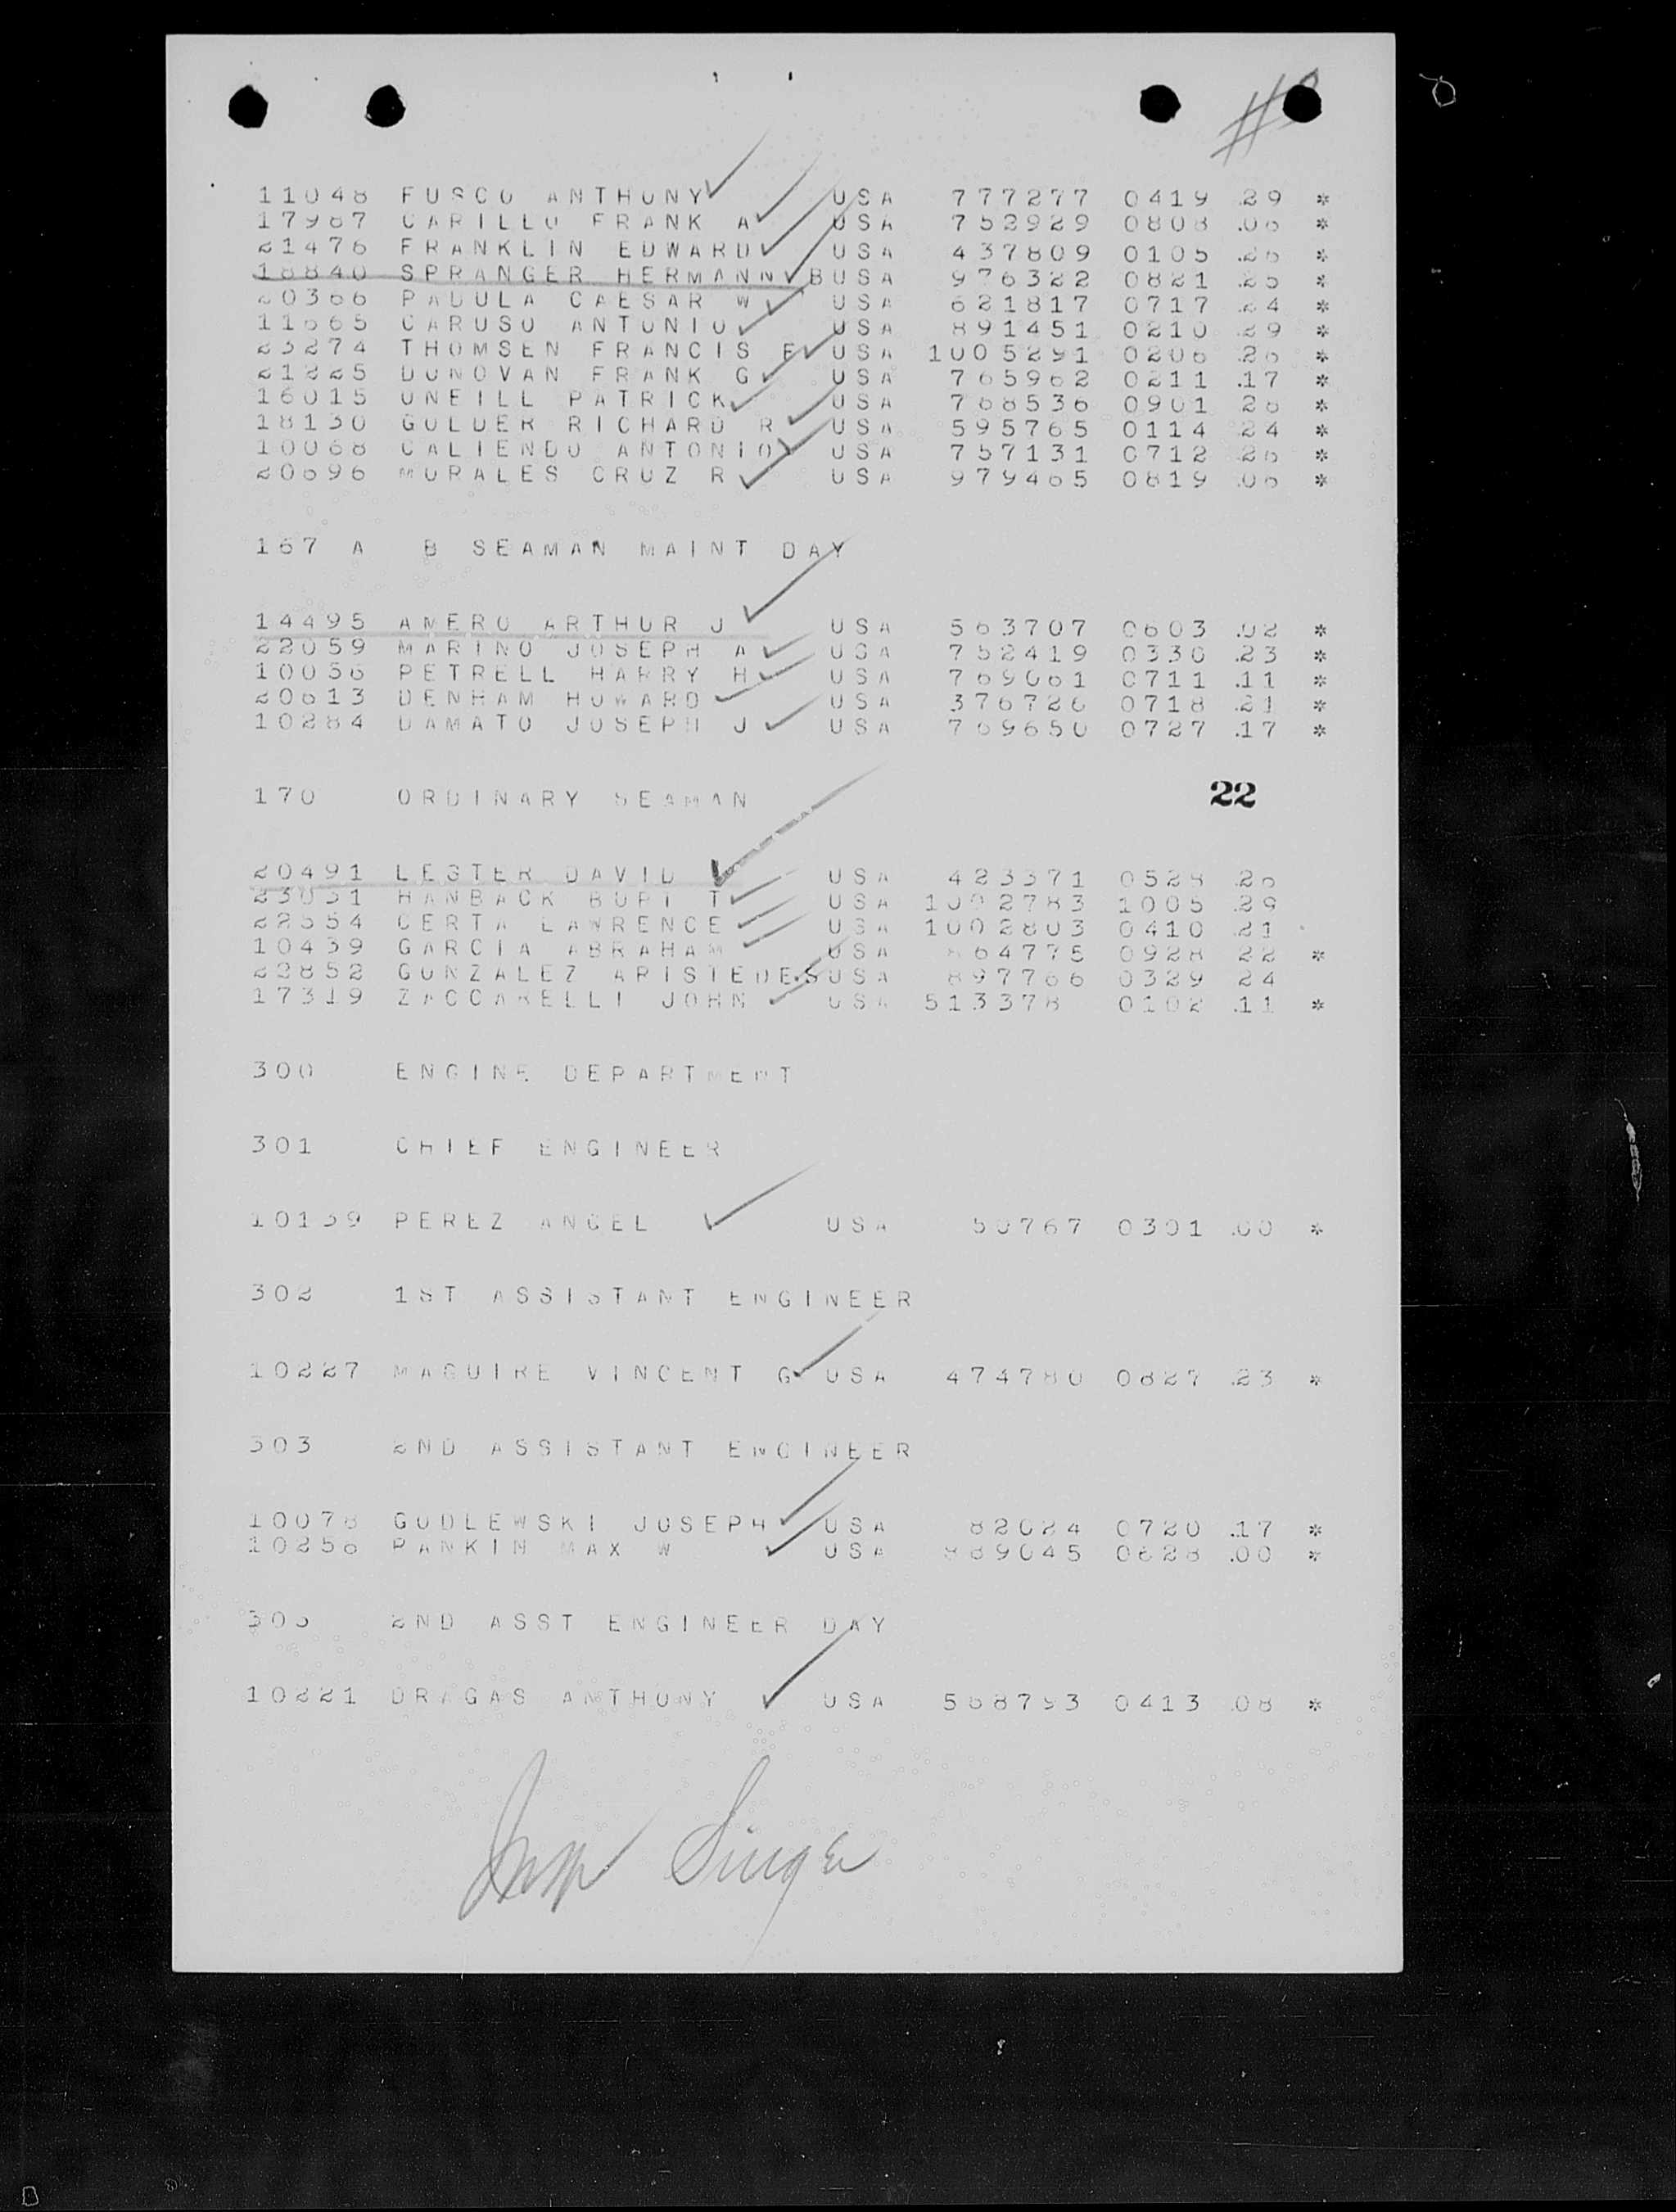 11048 FUSCO ANTHONY USA 777277 0419 .29 *
17967 CARILLO FRANK A USA 752929 0808 .06 *
21476 FRANKLIN EDWARD USA 437809 0105 .26 *
18840 SPRANGER HERMANN B USA 976322 0821 .25 *
20366 PADULA CAESAR W USA 621817 0717 .24 *
11665 CARUSO ANTONIO USA 891451 0210 .29 *
23274 THOMSEN FRANCIS F USA 1005291 0206 .26 *
21225 DONOVAN FRANK G USA 765962 0211 .17 *
16015 ONEILL PATRICK USA 768536 0901 26 *
18130 GOLDER RICHARD R USA 595765 0114 24 *
10068 CALIENDO ANTONIO USA 757131 0712 26 *
20696 MORALES CRUZ R USA 979465 0819 .06 *
167 A B SEAMAN MAINT DAY
14495 AMERO ARTHUR J USA 563707 0603 .02 *
22059 MARINO JOSEPH A USA 752419 0330 .23 *
10056 PETRELL HARRY H USA 769061 0711 .11 *
20613 DENHAM HOWARD USA 376726 0718 .21 *
10284 DAMATO JOSEPH J USA 769650 0727 .17 *
170 ORDINARY SEAMAN 22
20491 LESTER DAVID USA 423371 0528 .26
23031 HANBACK BURT T USA 1002783 1005 .29
22554 CERTA LAWRENCE USA 1002803 0410 .21
10439 GARCIA ABRAHAM USA 864775 0928 22 *
22852 GONZALEZ ARISTEDES USA 897766 0329 24
17319 ZACCARELLI JOHN USA 513378 0102 .11 *
300 ENGINE DEPARTMENT
301 CHIEF ENGINEER
10139 PEREZ ANGEL USA 50767 0301 .00 *
302 1ST ASSISTANT ENGINEER
10227 MAGUIRE VINCENT G USA 474780 0827 .23 *
303 2ND ASSISTANT ENGINEER
10078 GODLEWSKI JOSEPH USA 82024 0720 .17 *
10256 RANKIN MAX W USA 889045 0628 .00 *
305 2ND ASST ENGINEER DAY
10221 DRAGAS ANTHONY USA 568793 0413 .08 *